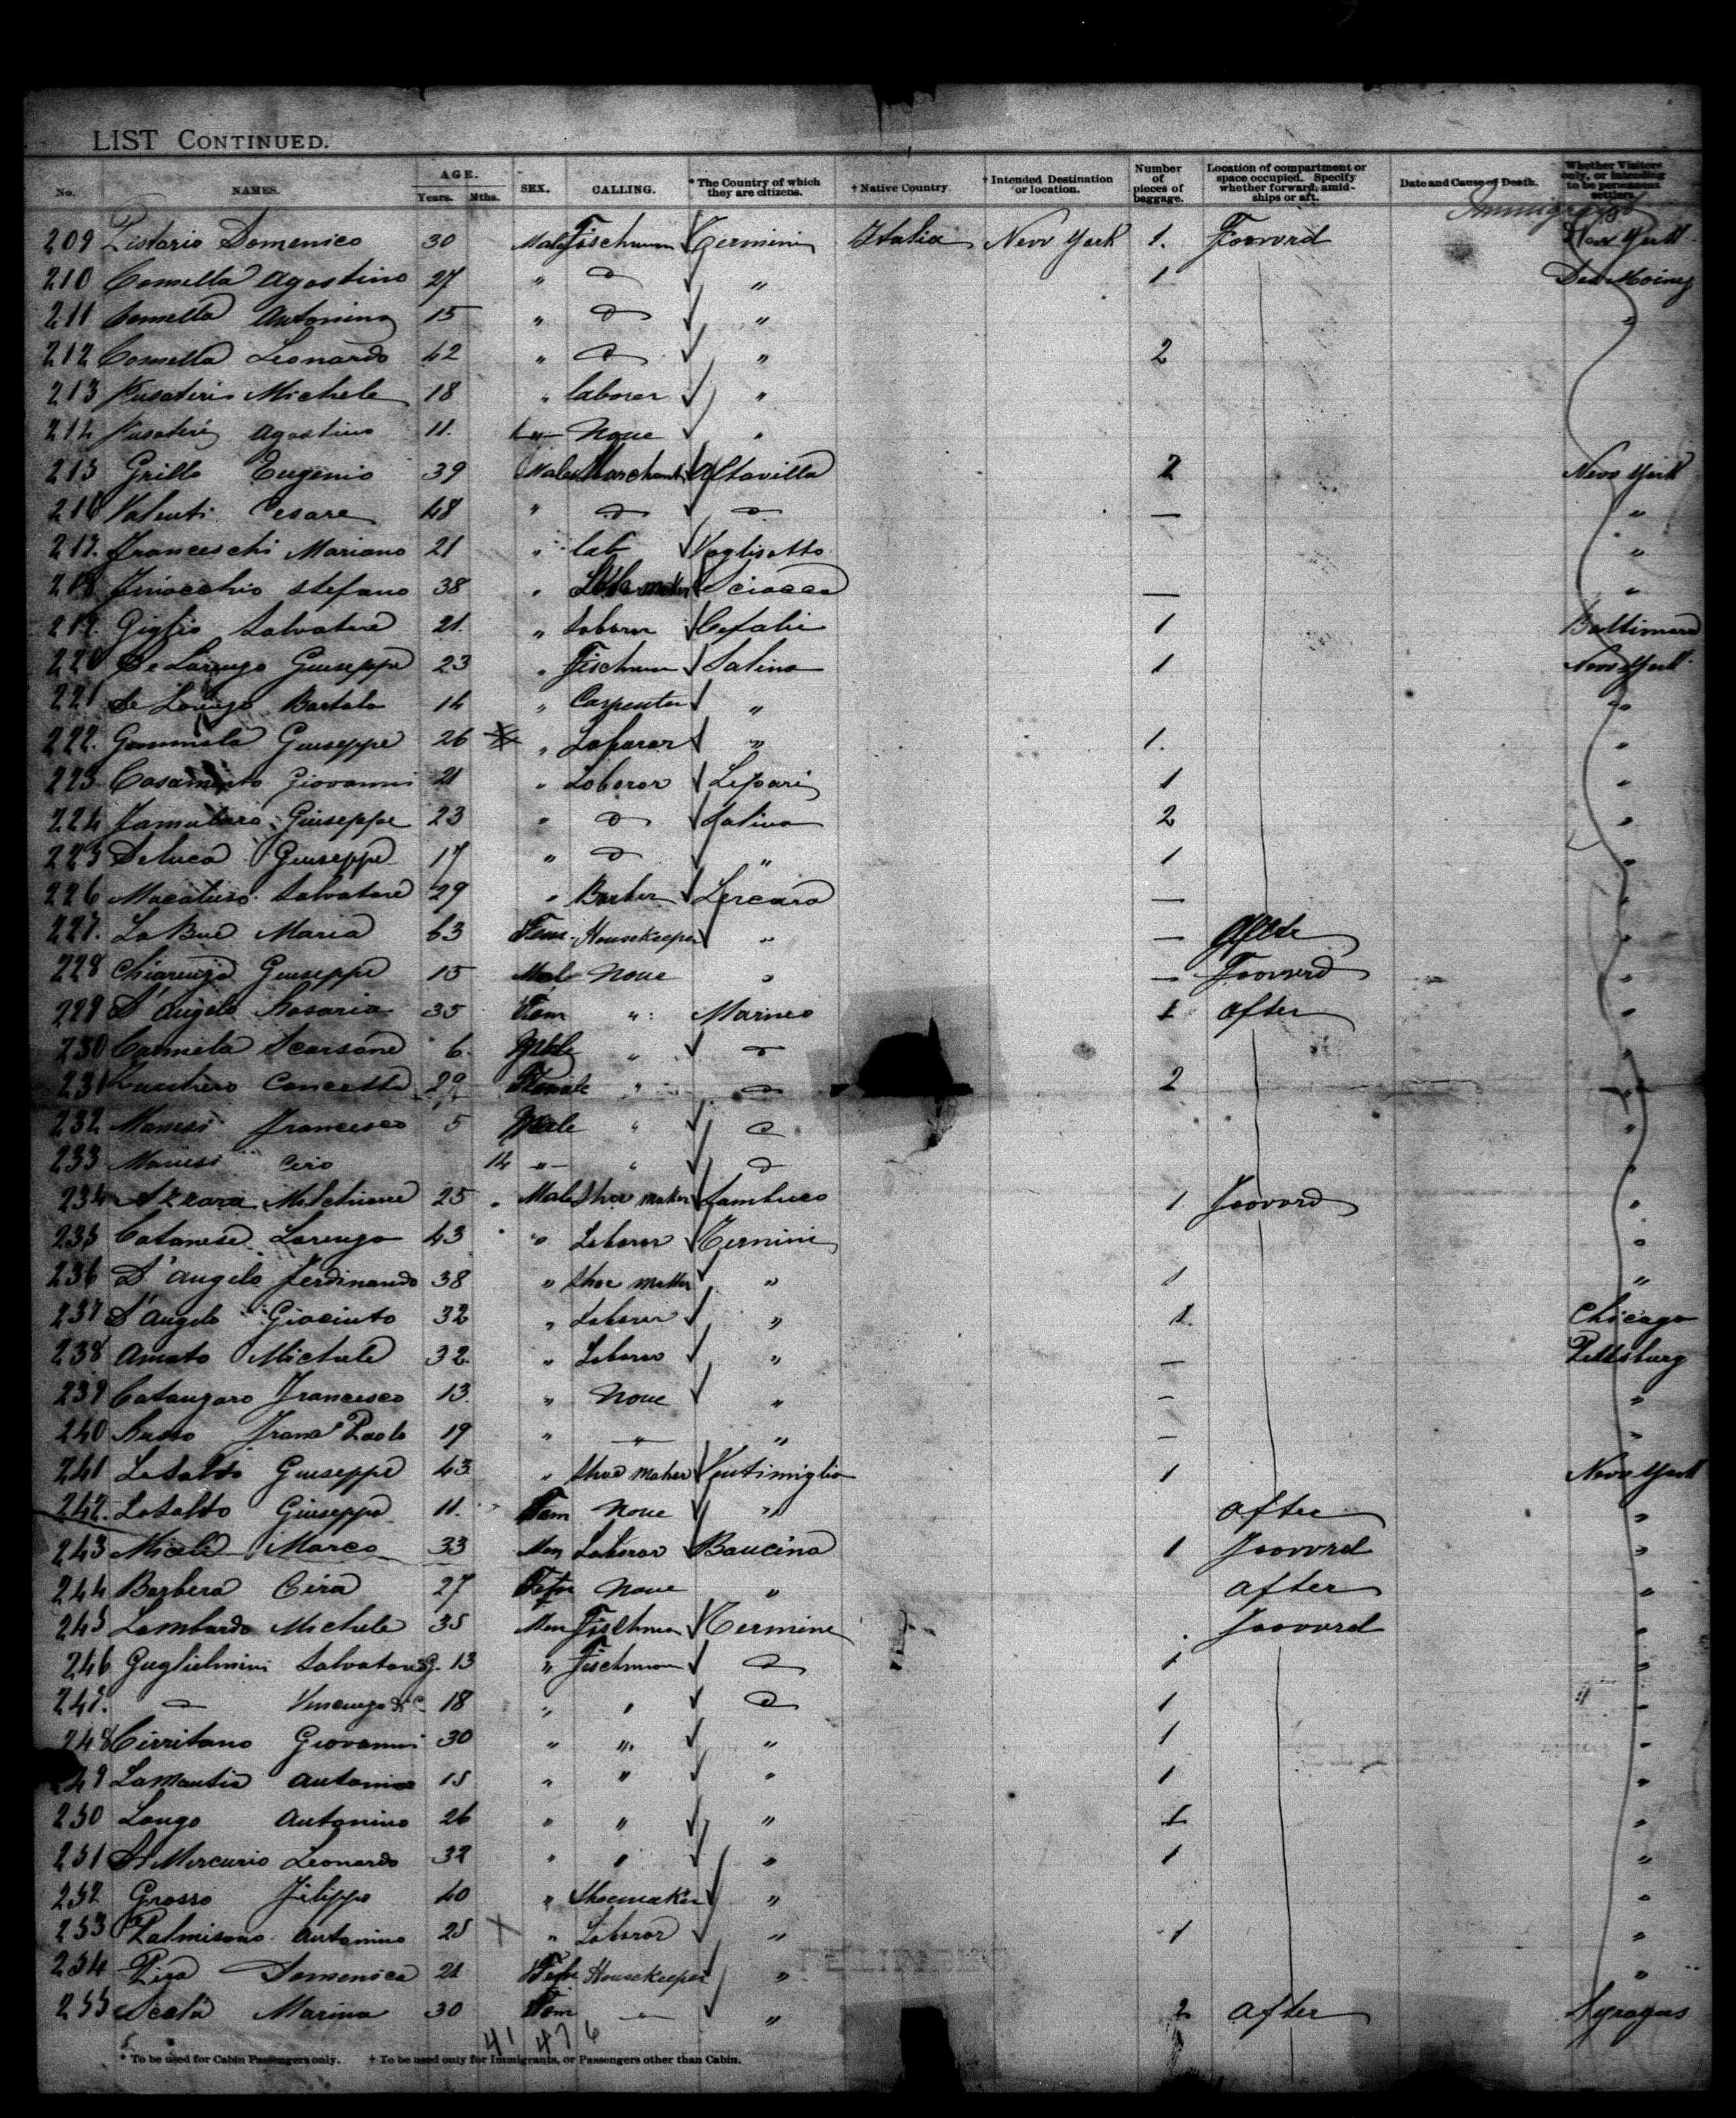 LIST CONTINUED.
No. NAMES. AGE. Years. Mths. SEX. CALLING. * The Country of which they are citizens. † Native Country. † Intended Destination or location. Number of pieces of baggage. Location of compartment or space occupied. Specify whether forward, amid-ships or aft. Date and Cause of Death. Whether Visitors only, or intending to be permanent settlers.
209 Pistorio Domenico 30 Male Fischman Termini Italia New York 1. Foovord New York
210 Comella Agostino 27 " " 1 Des Moines
211 Comella Antonino 15 " " "
212 Comella Leonardo 42 " " 2
213 Fusateri Michele 18 " laborer "
214 Fusateri Agostino 11. " None "
215 Grillo Eugenio 39 Male Marchant Altavilla 2 New York
216 Valenti Cesare 48 " — "
217. Franceschi Mariano 21 " lab "
218 Finocchio Stefano 38 " Sciacca — "
219. Giglio Salvatore 21. " Laborer Cefalù 1 Baltimora
220 De Lorenzo Giuseppe 23 " Fischman Salina 1 New York
221 De Lorenzo Bartolo 14 " Carpenter " "
222. Giuseppe 26 " Laborer " 1. "
223 Casamento Giovanni 21 " Loboror Lipari 1 "
224 Giuseppe 23 " Salina 2 "
225 Deluca Giuseppe 17 " " 1 "
226 Macaluso Salvatore 29 " Barber Lercara — "
227. Lo Bue Maria 63 Fem. Housekeeper " — After "
228 Chiarenza Giuseppe 15 Male None " — Foovord "
229 D'Angelo Rosaria 35 Fem " Marineo 1 after "
230 Carmela Scarsone 6. Male " "
231 Concetta 29 Female " 2 "
232 Manesi Francesco 5 Male " "
233 Manesi Ciro 14 " " "
234 Azzara Melchiorre 25 Male Shoe maker Sambuco 1 Foovord "
235 Catanese Lorenzo 43 " Loboror Termini "
236 D'Angelo Ferdinando 38 " Shoe maker " 1 "
237 D'Angelo Giacinto 32 " Laborer " 1. Chicago
238 Amato Michele 32. " Laboror " — Pittsburg
239 Catanzaro Francesco 13. " None " — "
240 Russo Franc Paolo 19 " " " — "
241 LoSaldo Giuseppe 43 " Shoe maker Ventimiglia 1 New York
242. LoSaldo Giuseppa 11. Fem None " after "
243 Miceli Marco 33 Men Laboror Baucina 1 Foovord "
244 Barbera Cira 27 Fem None " after "
245 Lombardo Michele 35 Men Fischman Termine Foovord "
246 Guglielmini Salvatore G. 13 " Fischman 1 "
247. Vincenzo 18 " " 1 "
248 Cirritano Giovanni 30 " " " 1 "
249 LaMantia Antonino 15 " " " 1 "
250 Longo Antonino 26 " " " 1 "
251 DiMercurio Leonardo 32 " " " 1 "
252 Grosso Filippo 40 " Shoemaker " "
253 Palmisano Antonino 25 " Loboror " 1 "
254 Domenica 21 Fem Housekeeper " "
255 Scola Marina 30 Fem " " 2 after Syragus
41 476
* To be used for Cabin Passengers only. † To be used only for Immigrants, or Passengers other than Cabin.